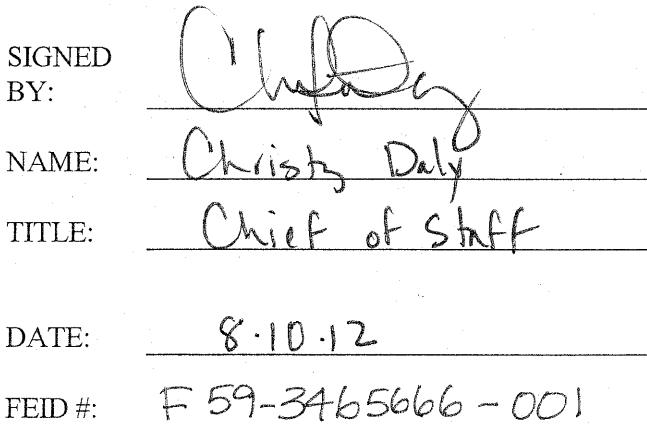 SIGNED
BY:
NAME: Christy Daly
TITLE: Chief of Staff
DATE: 8.10.12
FEID #: F 59-3465666-001